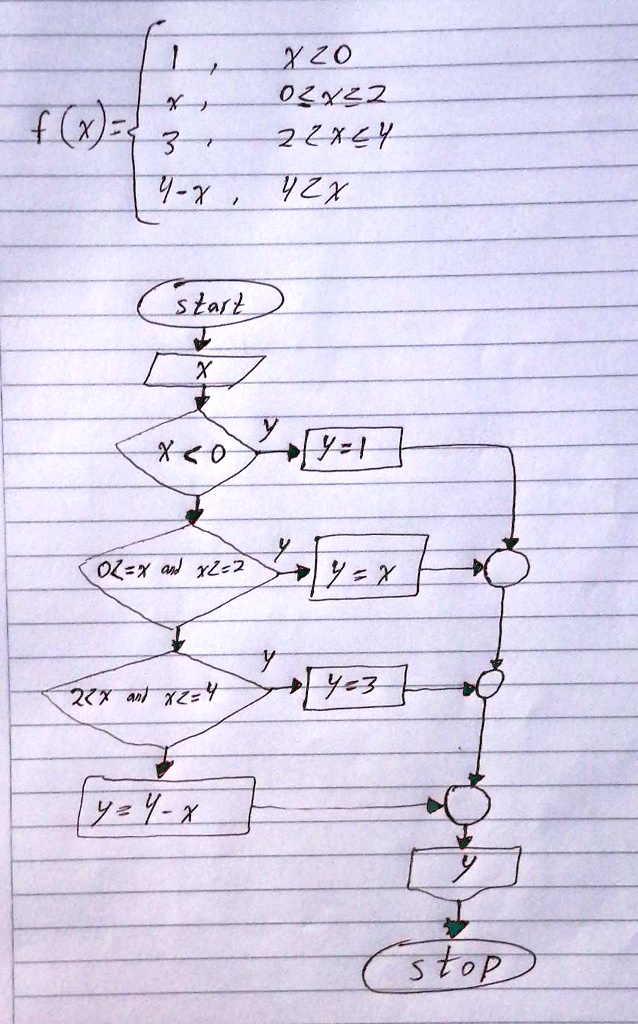 f(x)=
1, x<0
x, 0≤x≤2
3, 2<x≤4
4-x, 4<x
start
x
x<0 y y=1
0<=x and x<=2 y y=x
2<x and x<=4 y y=3
y=4-x
y
stop